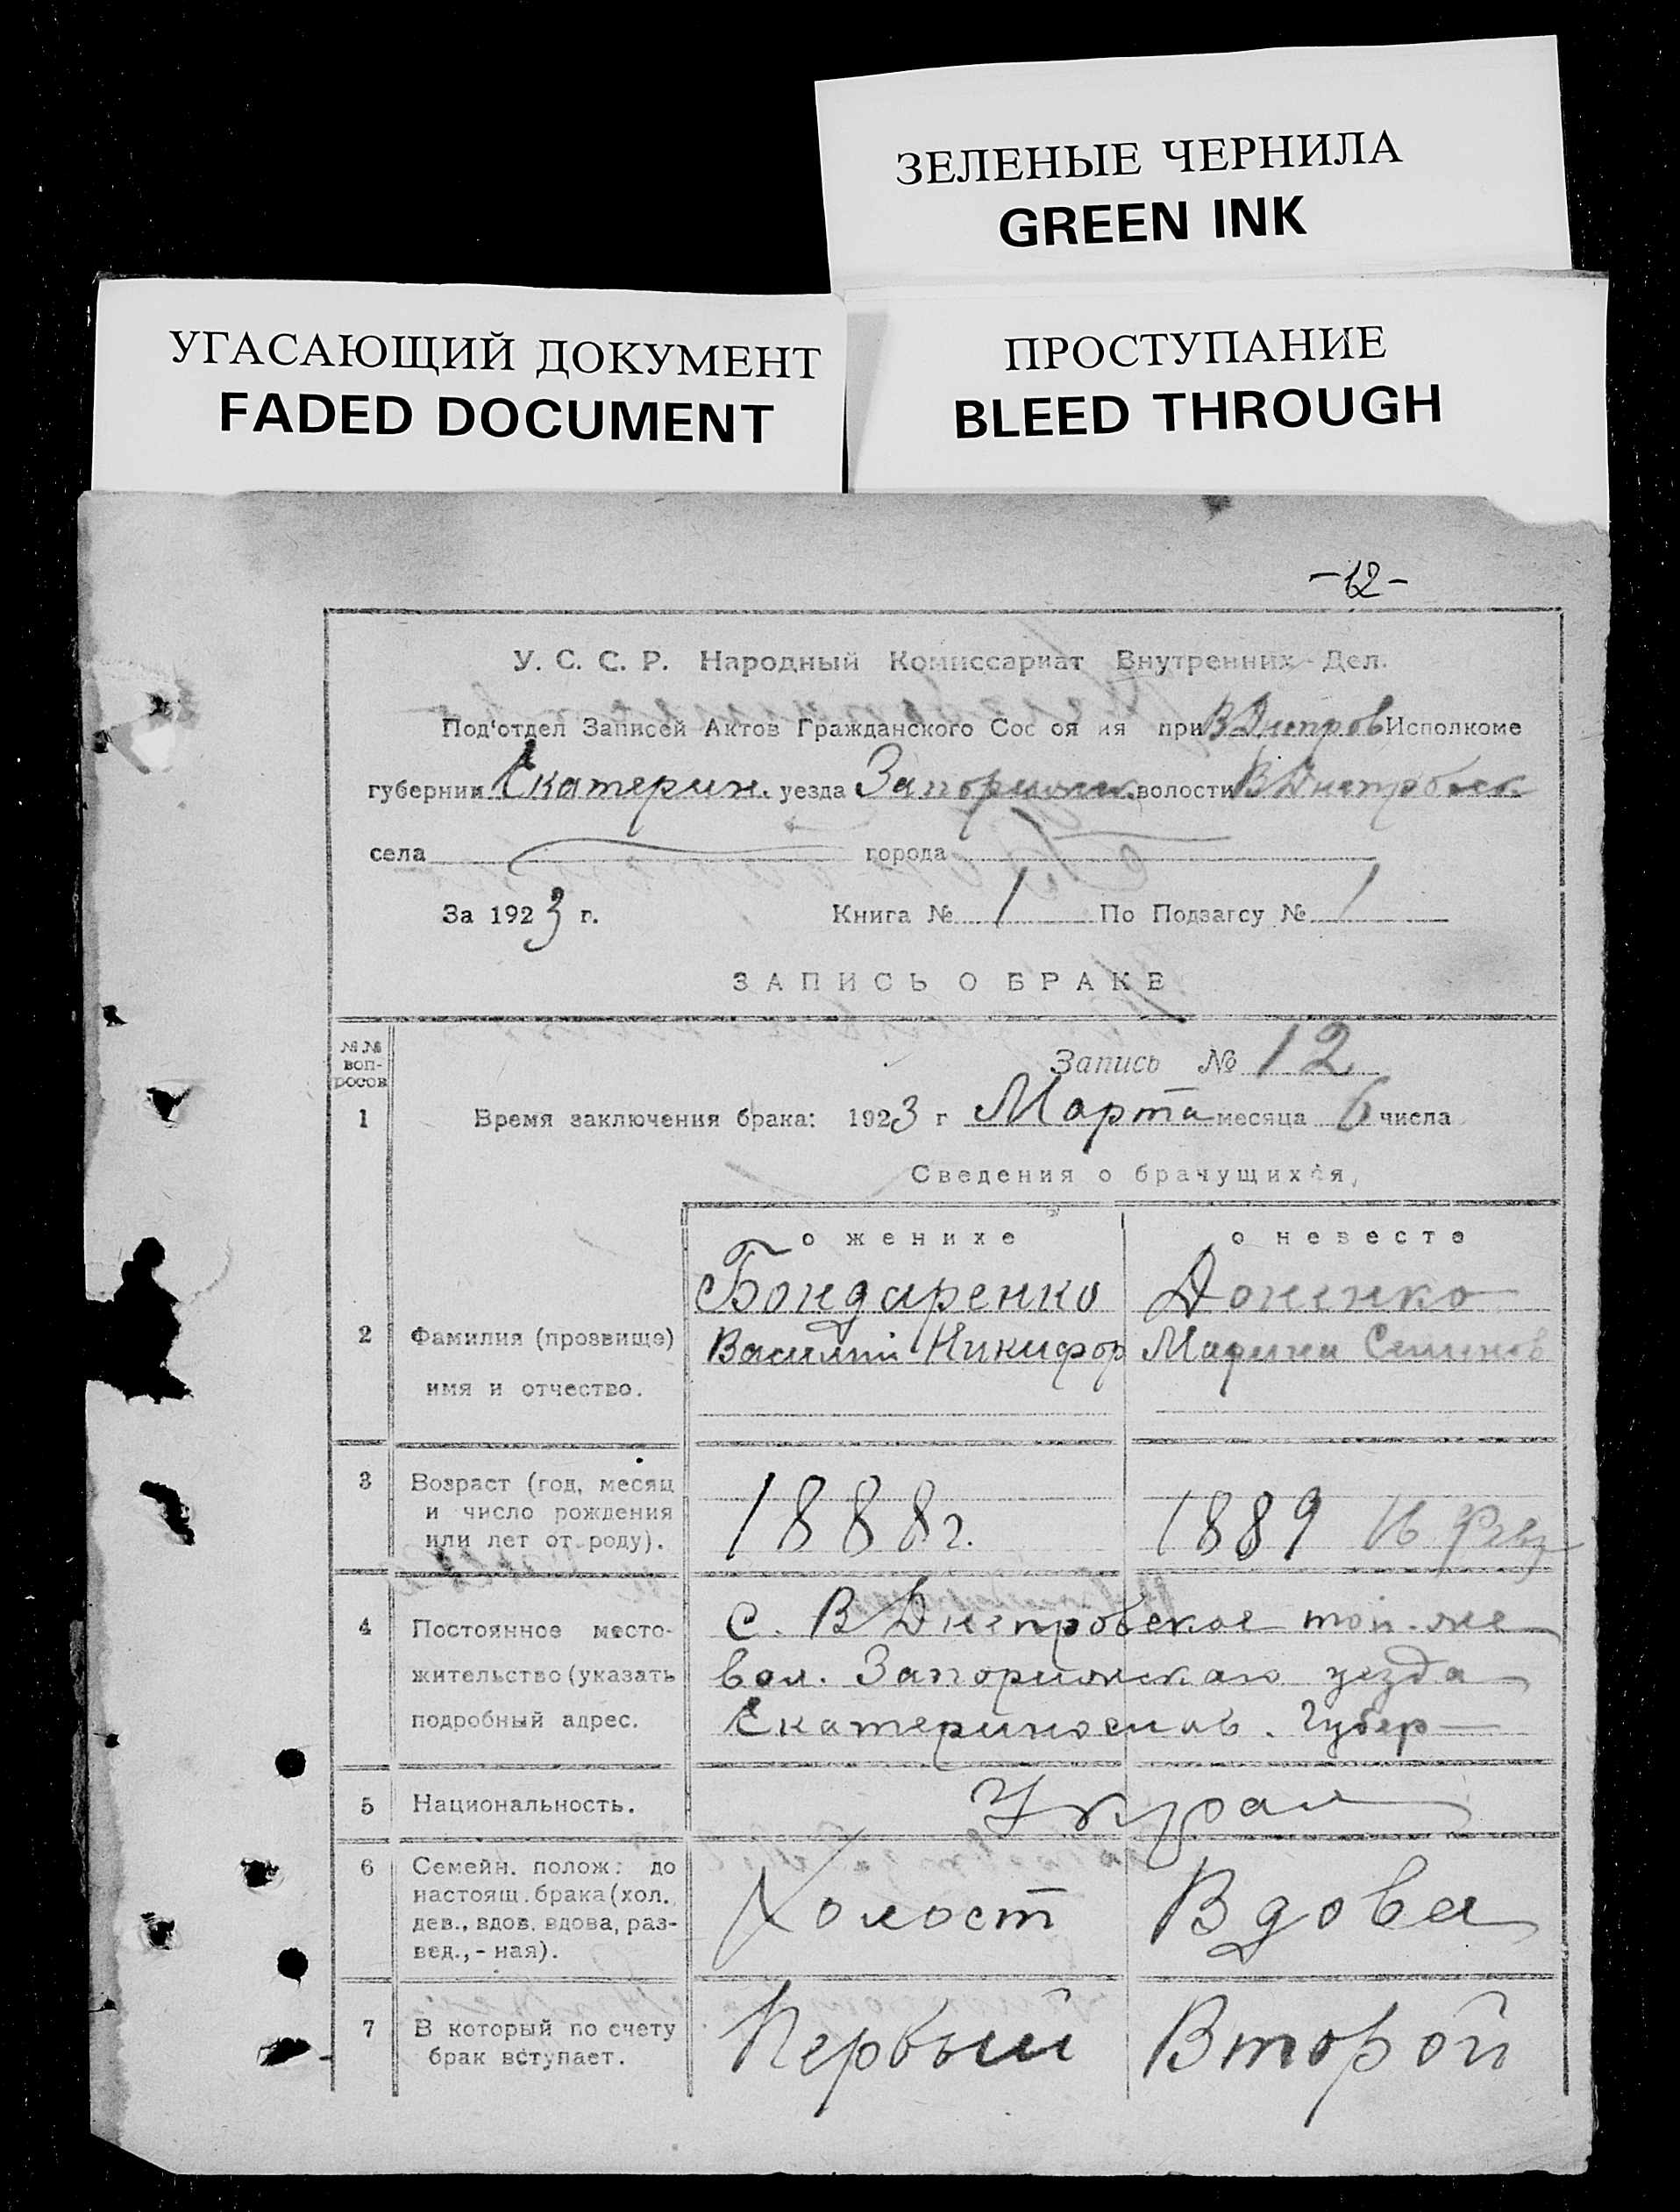 ЗЕЛЕНЫЕ ЧЕРНИЛА
GREEN INK
УГАСАЮЩИЙ ДОКУМЕНТ
FADED DOCUMENT
ПРОСТУПАНИЕ
BLEED THROUGH
-12-
У. С. С. Р. Народный Комиссариат Внутренних Дел.
Под'отдел Записей Актов Гражданского Сос оя ия при ВДнепров Исполкоме
губернии Екатерин. уезда Запорижск. волости ВДнепровск
села города
За 1923 г. Книга № 1 По Подзагсу № 1
ЗАПИСЬ О БРАКЕ
№№ вопросов
Запись № 12
1 Время заключения брака: 1923 г Марта месяца 6 числа
Сведения о брачущихся,
о женихе о невесте
Бондаренко Доненко
2 Фамилия (прозвище) Василий Никифор Марина Семенов
имя и отчество.
3 Возраст (год, месяц
и число рождения 1888 г. 1889 16
или лет от роду).
4 Постоянное место- С. ВДнепровское той-же
жительство (указать вол. Запорижскаго уезда
подробный адрес. Екатеринослав. Губер
5 Национальность. Украин
6 Семейн. полож: до
настоящ. брака (хол. Холост Вдова
дев., вдов. вдова, раз-
вед.,- ная).
7 В который по счету Первый Второй
брак вступает.